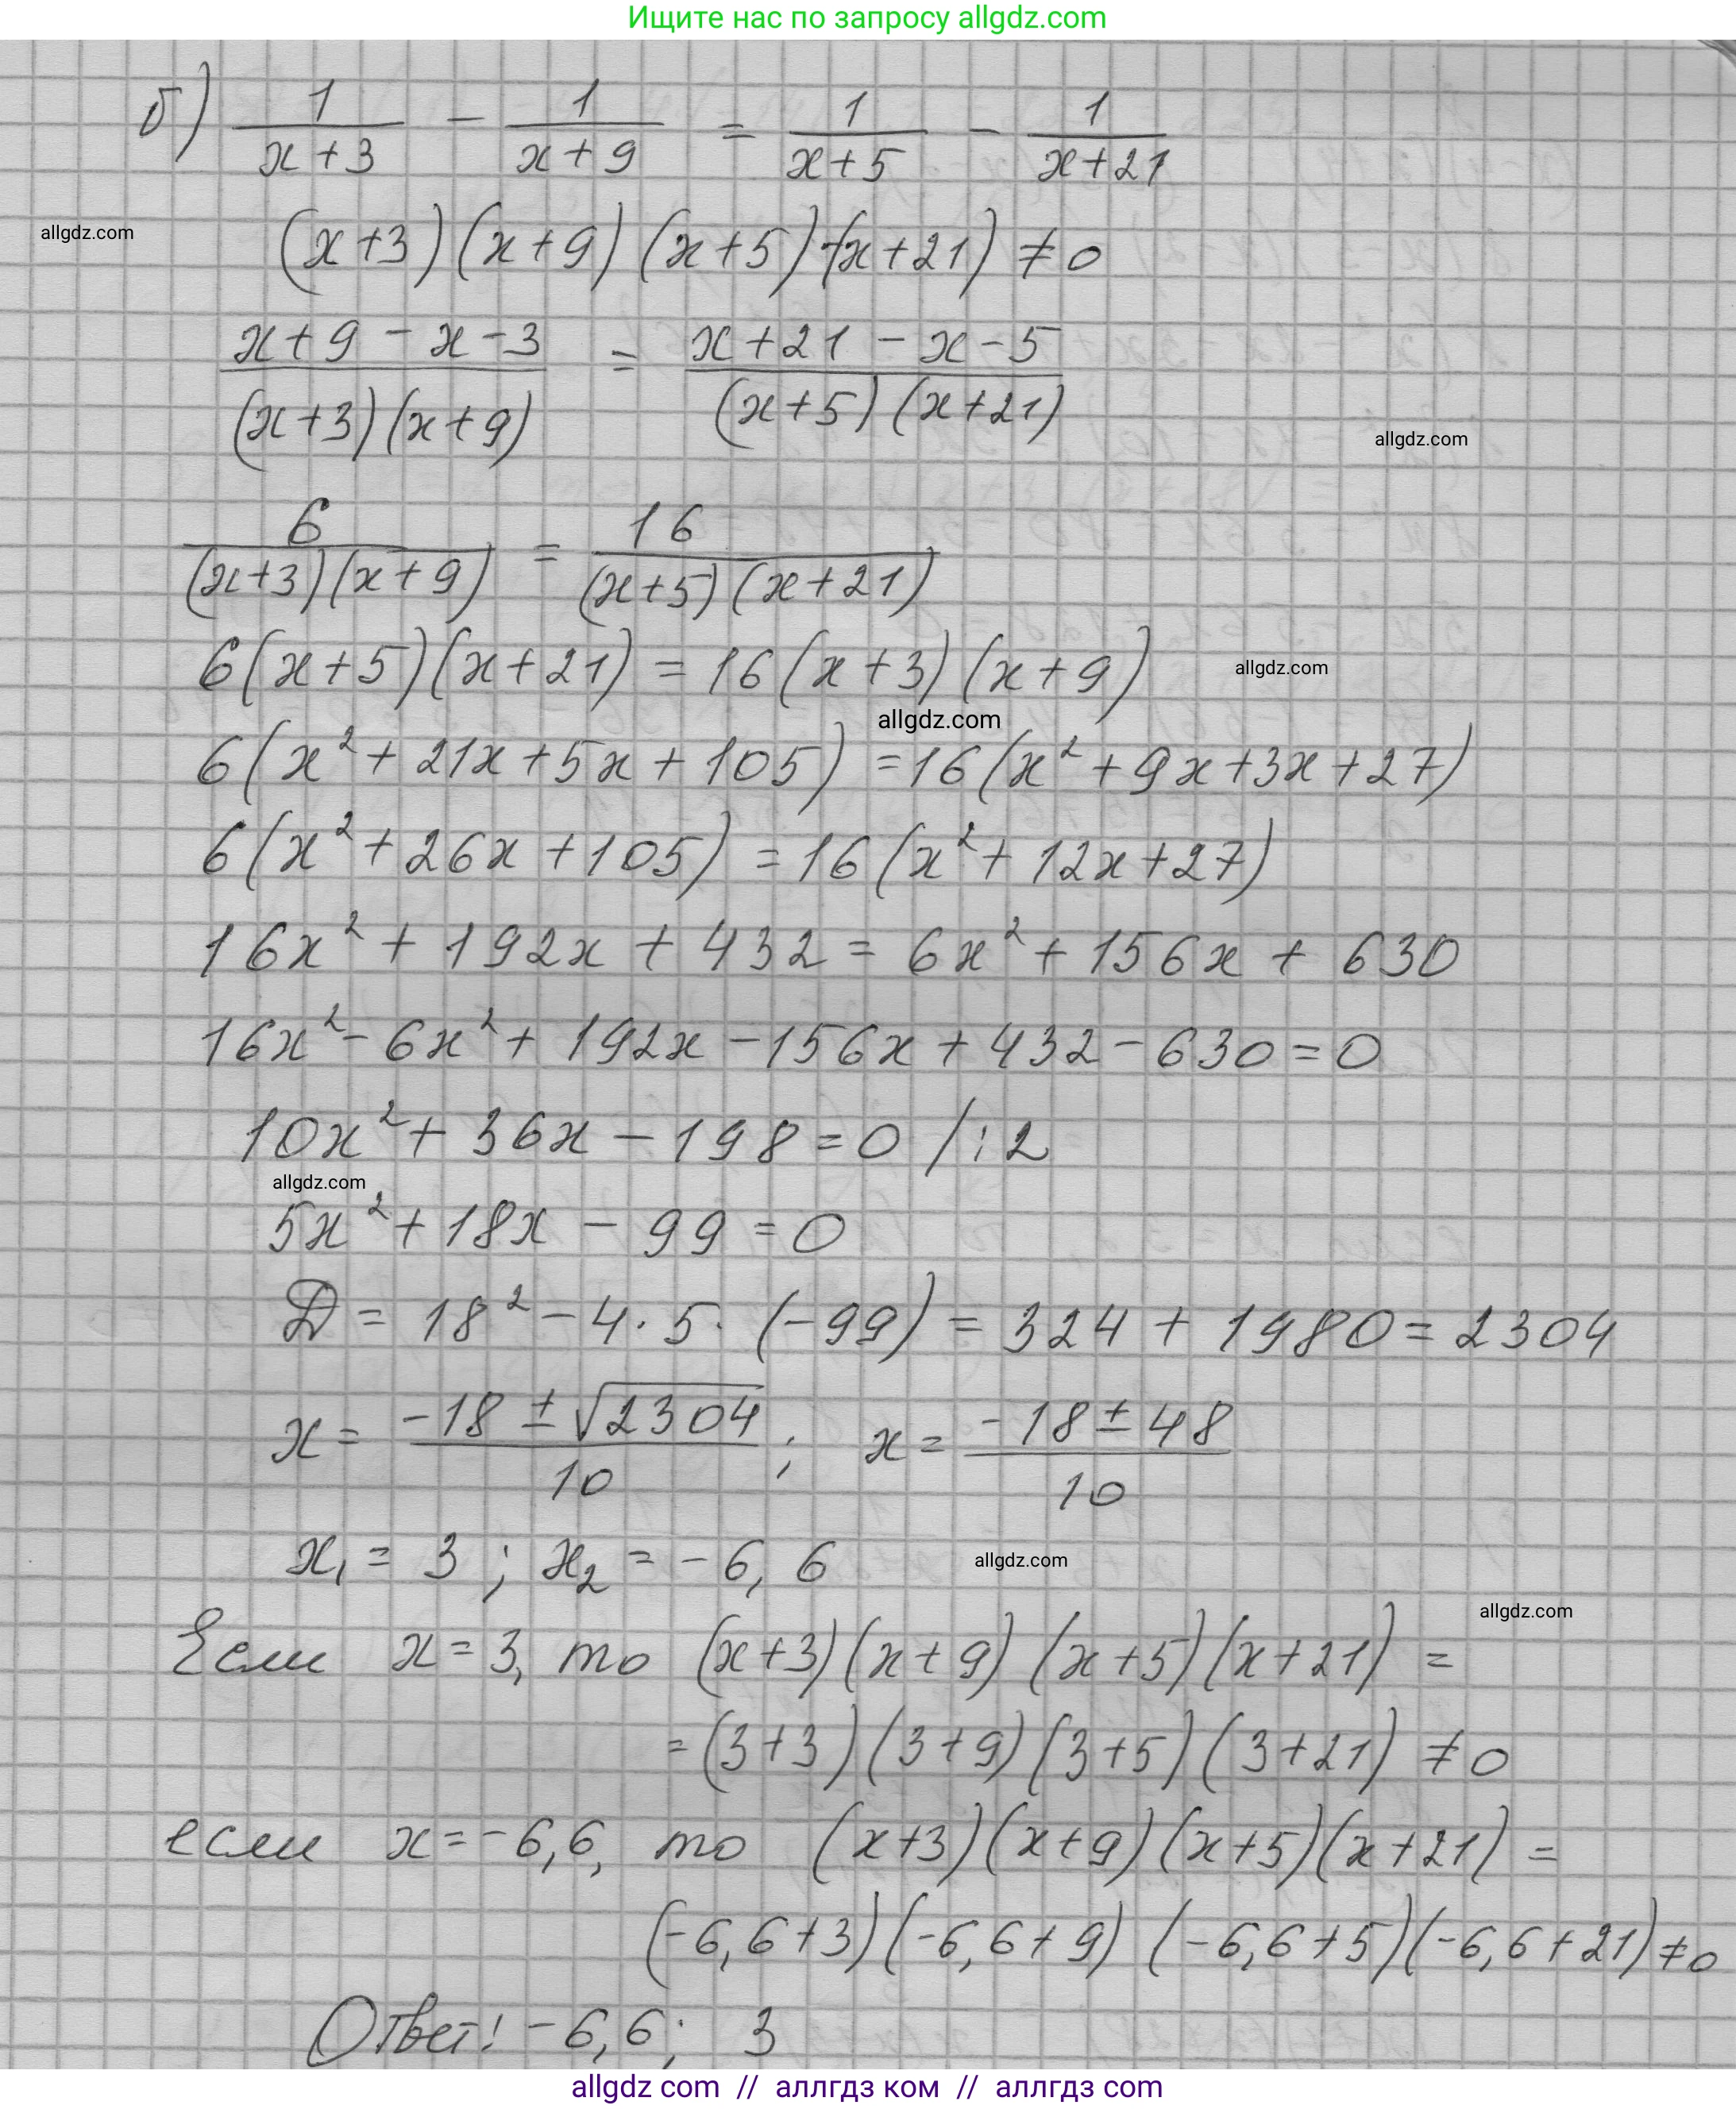 Ищите нас по запросу allgdz.com
б) 1/(x+3) - 1/(x+9) = 1/(x+5) - 1/(x+21)
allgdz.com
(x+3)(x+9)(x+5)(x+21) ≠ 0
(x+9-x-3)/((x+3)(x+9)) = (x+21-x-5)/((x+5)(x+21))
allgdz.com
6/((x+3)(x+9)) = 16/((x+5)(x+21))
6(x+5)(x+21) = 16(x+3)(x+9)
allgdz.com
allgdz.com
6(x²+21x+5x+105) = 16(x²+9x+3x+27)
6(x²+26x+105) = 16(x²+12x+27)
16x²+192x+432 = 6x²+156x+630
16x²-6x²+192x-156x+432-630=0
10x²+36x-198=0 /:2
allgdz.com
5x²+18x-99=0
D = 18²-4·5·(-99) = 324+1980=2304
x = (-18±√2304)/10; x = (-18±48)/10
x₁ = 3; x₂ = -6,6
allgdz.com
allgdz.com
Если x=3, то (x+3)(x+9)(x+5)(x+21) =
=(3+3)(3+9)(3+5)(3+21) ≠ 0
если x=-6,6, то (x+3)(x+9)(x+5)(x+21) =
(-6,6+3)(-6,6+9)(-6,6+5)(-6,6+21)≠0
Ответ: -6,6; 3
allgdz com // аллгдз ком // аллгдз com